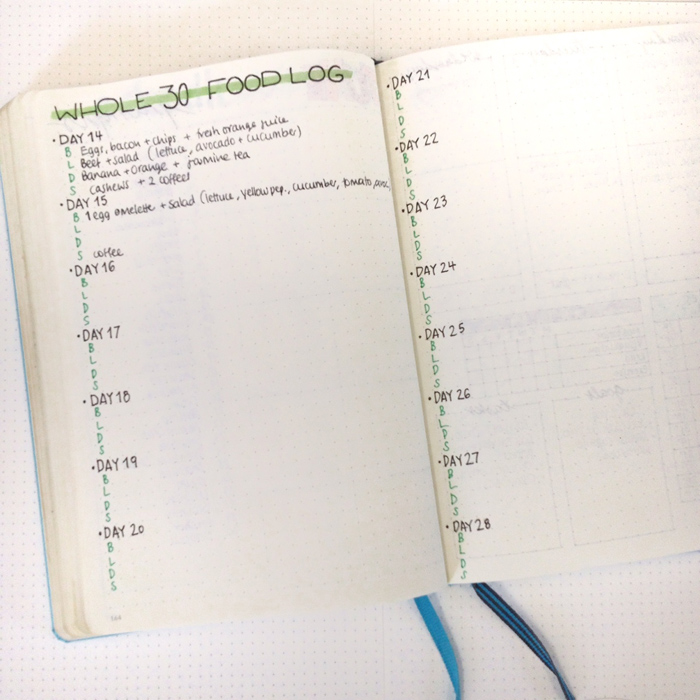 WHOLE 30 FOOD LOG
• DAY 14
B Eggs, bacon + chips + fresh orange juice
L Beef + salad (lettuce, avocado + cucumber)
D Banana + orange + jasmine tea
S cashews + 2 coffees
• DAY 15
B 1 egg omelette + salad (lettuce, yellow pep., cucumber, tomato,
L
D
S coffee
• DAY 16
B
L
D
S
• DAY 17
B
L
D
S
• DAY 18
B
L
D
S
• DAY 19
B
L
D
S
• DAY 20
B
L
D
S
• DAY 21
B
L
D
S
• DAY 22
B
L
D
S
• DAY 23
B
L
D
S
• DAY 24
B
L
D
S
• DAY 25
B
L
D
S
• DAY 26
B
L
D
S
• DAY 27
B
L
D
S
• DAY 28
B
L
D
S